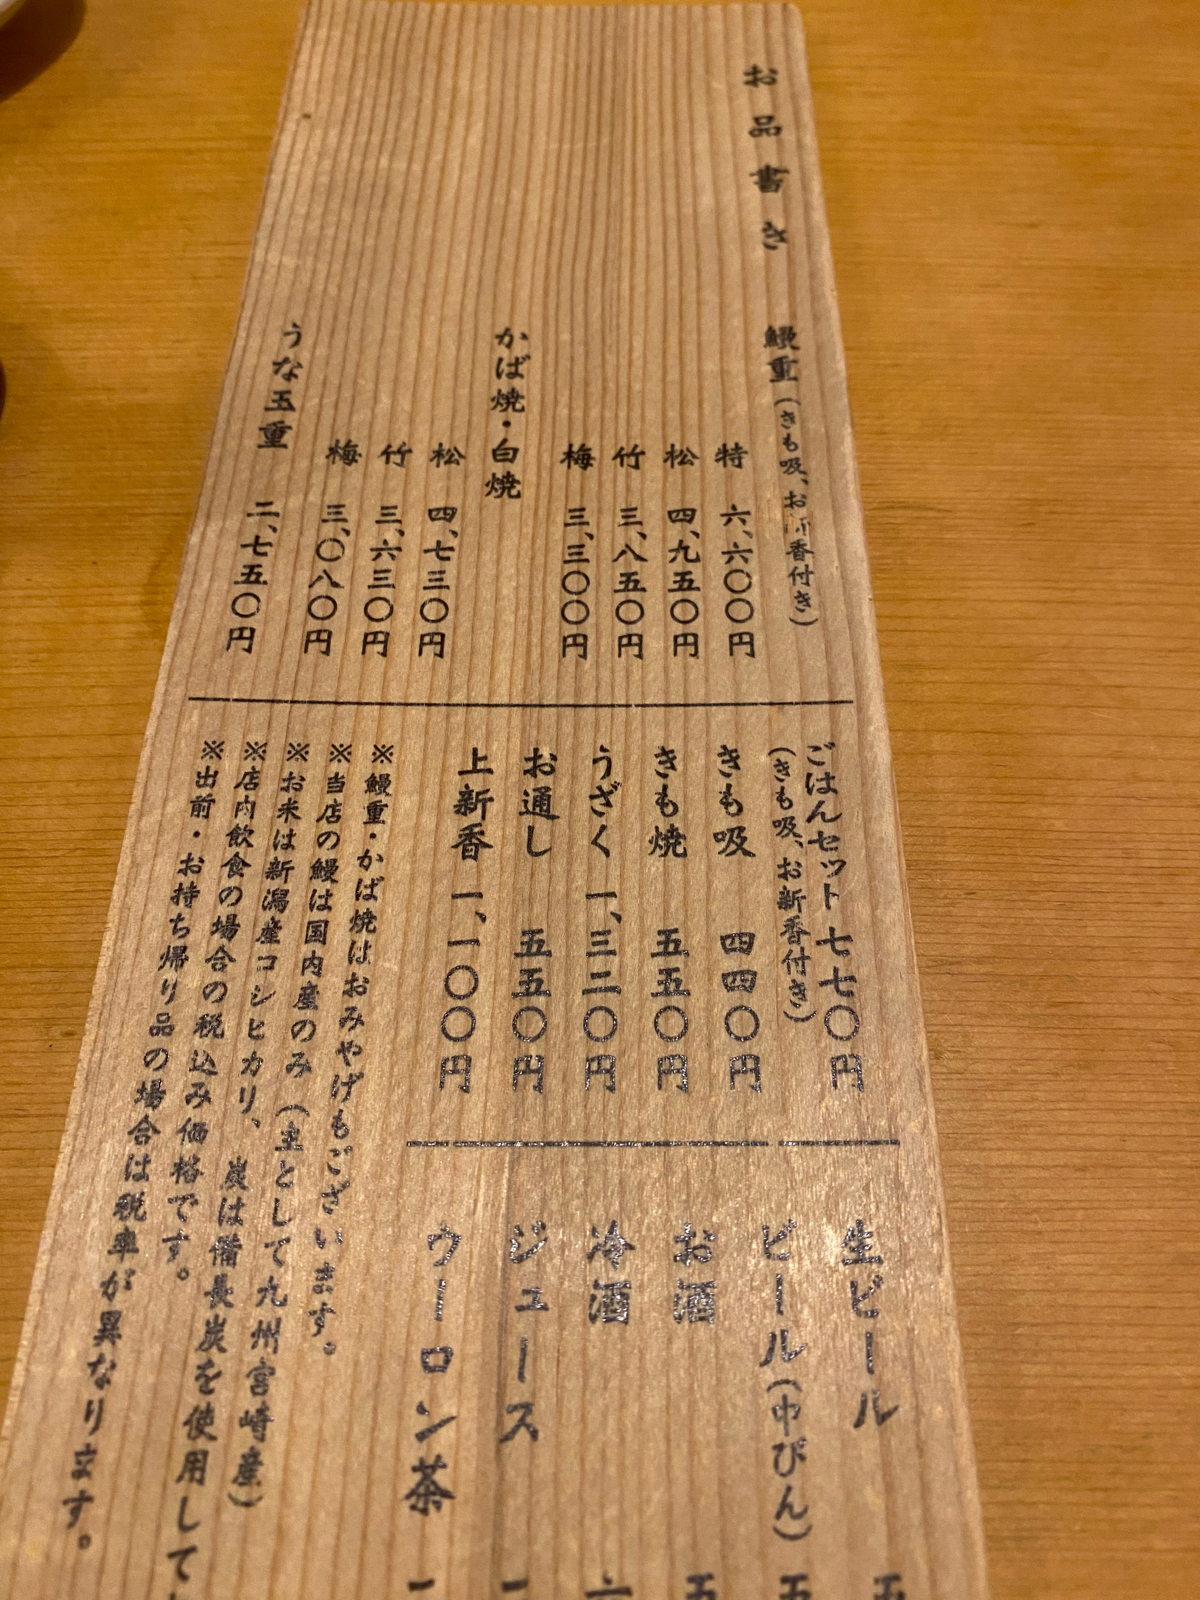 お品書き
鰻重(きも吸、お新香付き)
特 六、六〇〇円
松 四、九五〇円
竹 三、八五〇円
梅 三、三〇〇円
かば焼・白焼
松 四、七三〇円
竹 三、六三〇円
梅 三、〇八〇円
うな玉重 二、七五〇円
ごはんセット 七七〇円
(きも吸、お新香付き)
きも吸 四四〇円
きも焼 五五〇円
うざく 一、三二〇円
お通し 五五〇円
上新香 一、一〇〇円
※鰻重・かば焼はおみやげもございます。
※当店の鰻は国内産のみ(主として九州宮崎産)
※お米は新潟産コシヒカリ、炭は備長炭を使用して
※店内飲食の場合の税込み価格です。
※出前・お持ち帰り品の場合は税率が異なります。
生ビール 五
ビール(中びん) 五
お酒 五
冷酒
ジュース
ウーロン茶